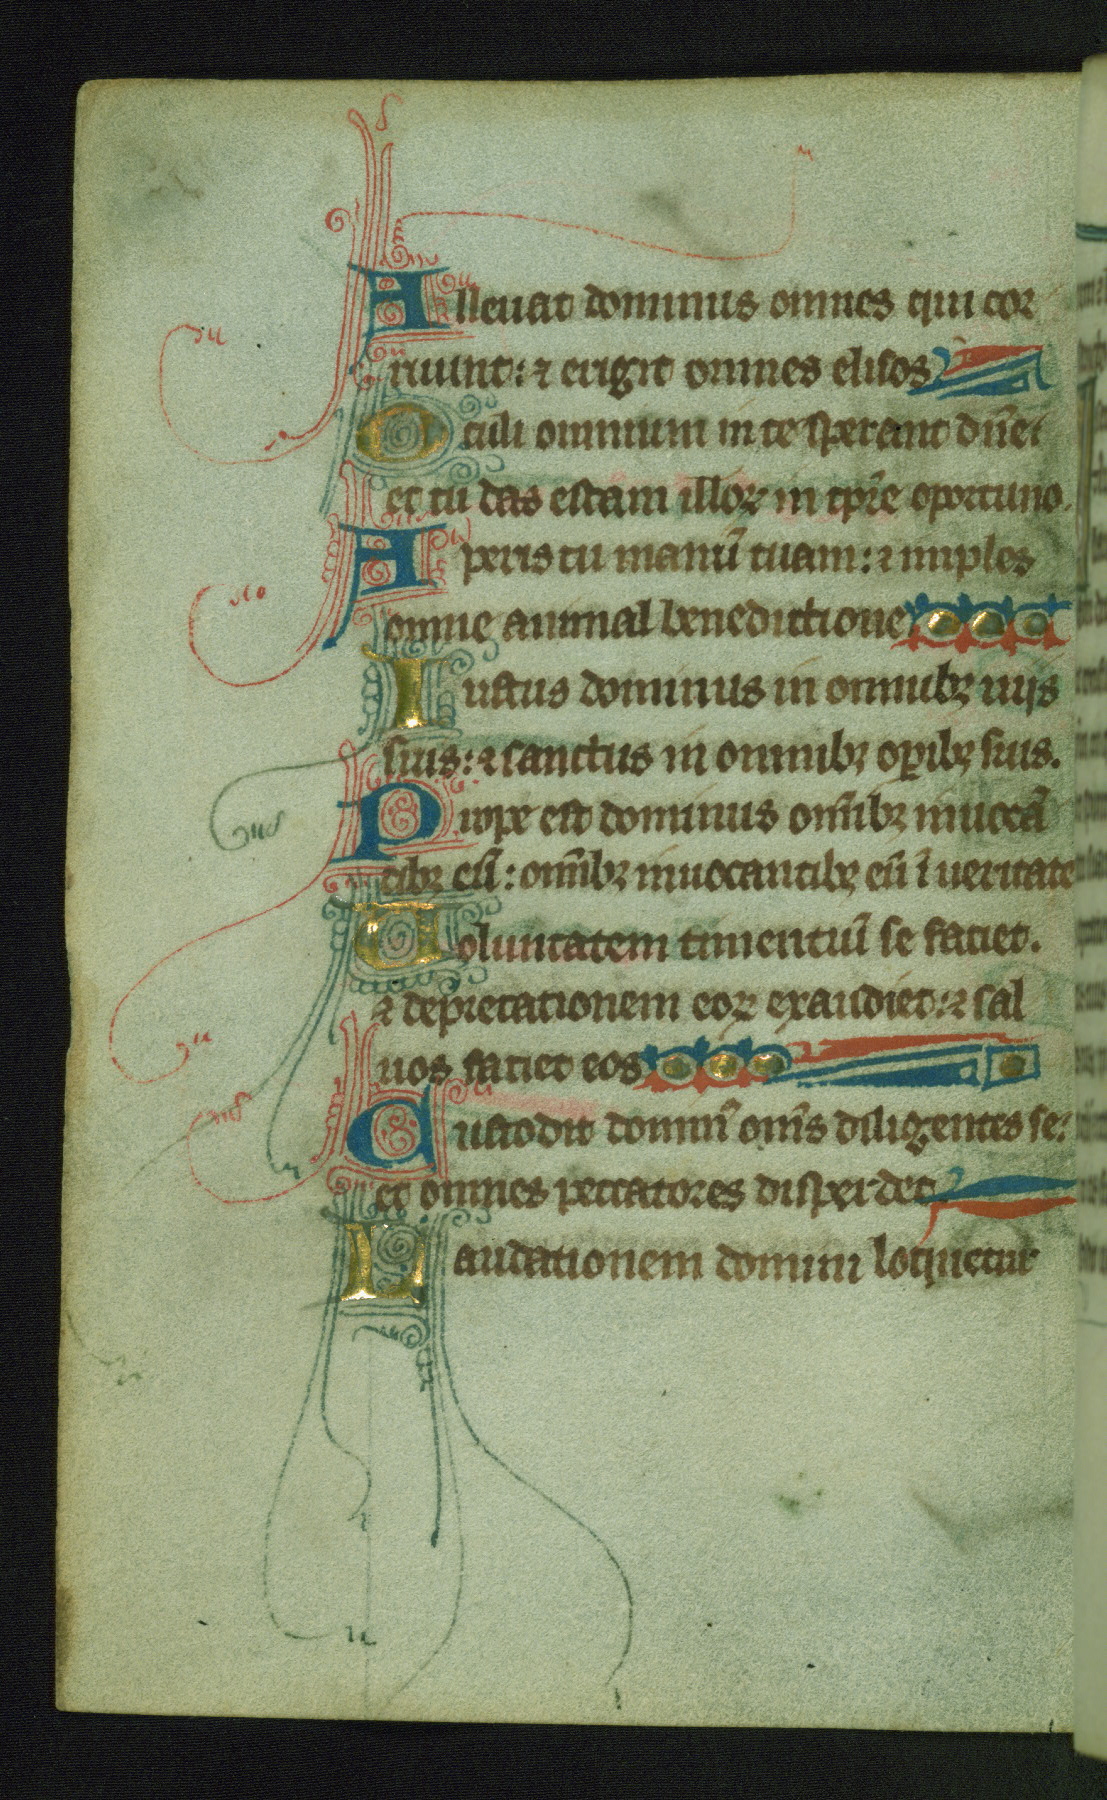 Alleuat dominus omnes qui cor
ruunt: ⁊ erigit omnes elisos
Oculi omnium in te sperant dn̄e
et tu das escam illoꝝ in tp̄re oportuno.
Aperis tu manū tuam: ⁊ imples
omne animal benedictione
Iustus dominus in omnibꝫ uijs
suis: ⁊ sanctus in omnibꝫ oꝑibꝫ suis.
Prope est dominus om̄ibꝫ inuocā
tibꝫ eū: om̄ibꝫ inuocantibꝫ eū ī ueritate
Uoluntatem timentiū se faciet.
⁊ deprecationem eoꝝ exaudiet: ⁊ sal
uos faciet eos
Custodit domin̄ om̄s diligentes se:
et omnes peccatores disperdet
Laudationem domini loquetur